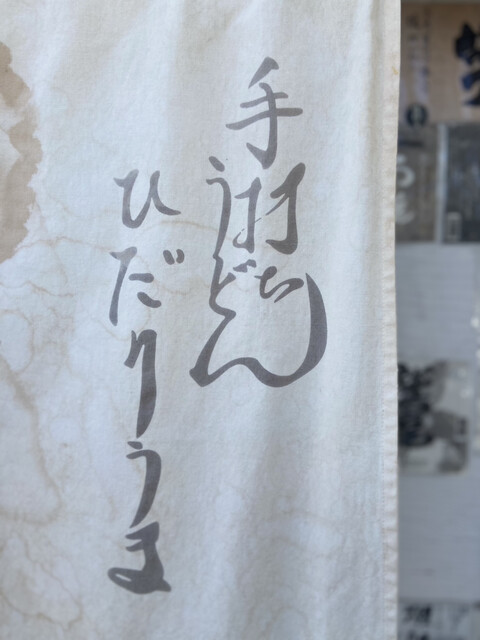 手打ち
うどん
ひだりうま